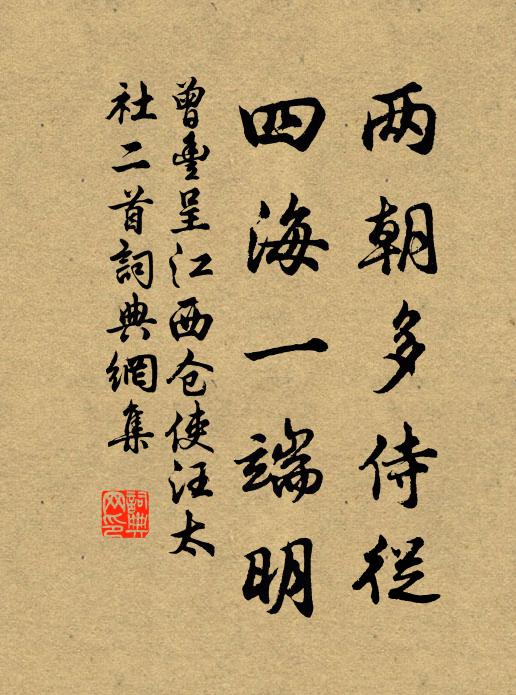 两朝多侍從
四海一端明
曾豐呈江西仓使汪太
社二首詞典網集
詞典網印